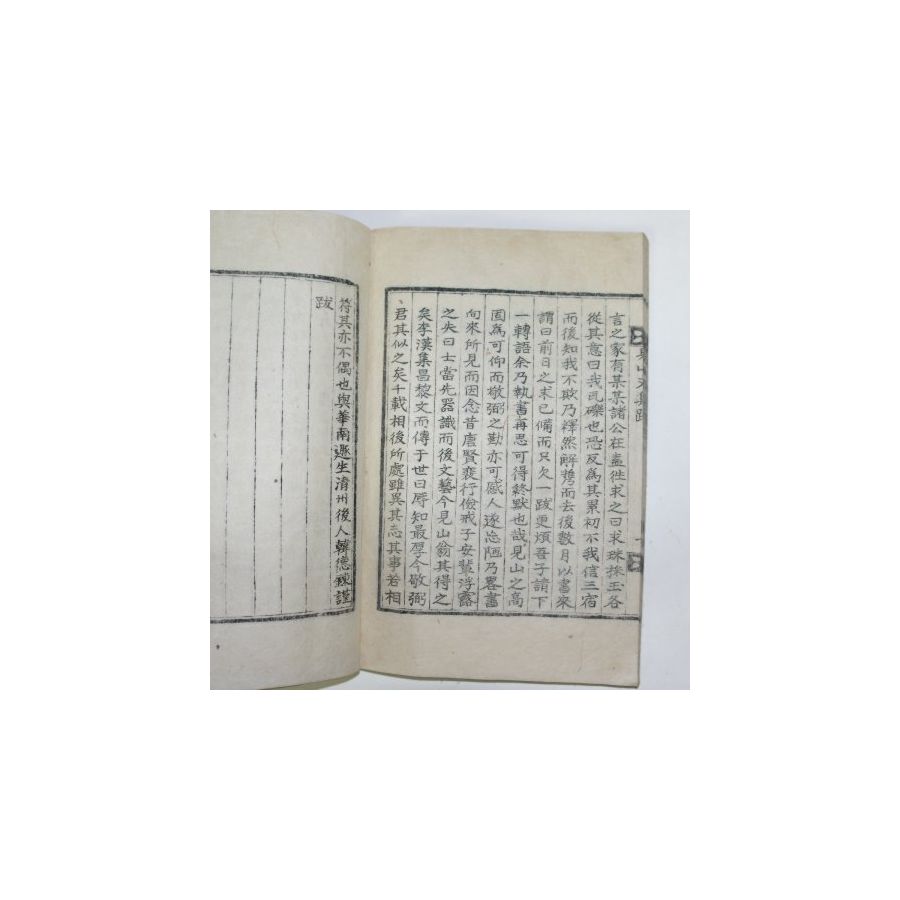 見山文集跋
言之家有某某諸公在盍徃求之曰求珠採玉各
從其意曰我瓦礫也恐反爲其累初不我信三宿
而後知我不欺乃釋然解携而去後數月以書來
謂曰前日之求已備而只欠一跋更煩吾子請下
一轉語余乃執書再思可得終默也哉見山之高
固爲可仰而敬弼之勤亦可感人遂忘陋乃畧書
向來所見而因念昔唐賢裵行儉戒子安輩浮露
之失曰士當先器識而後文藝今見山翁其得之
矣李漢集昌黎文而傳于世曰辱知最厚今敬弼
君其似之矣千載相後所處雖異其志其事若相
符其亦不偶也與華南遯生淸州後人韓德鍊謹
跋